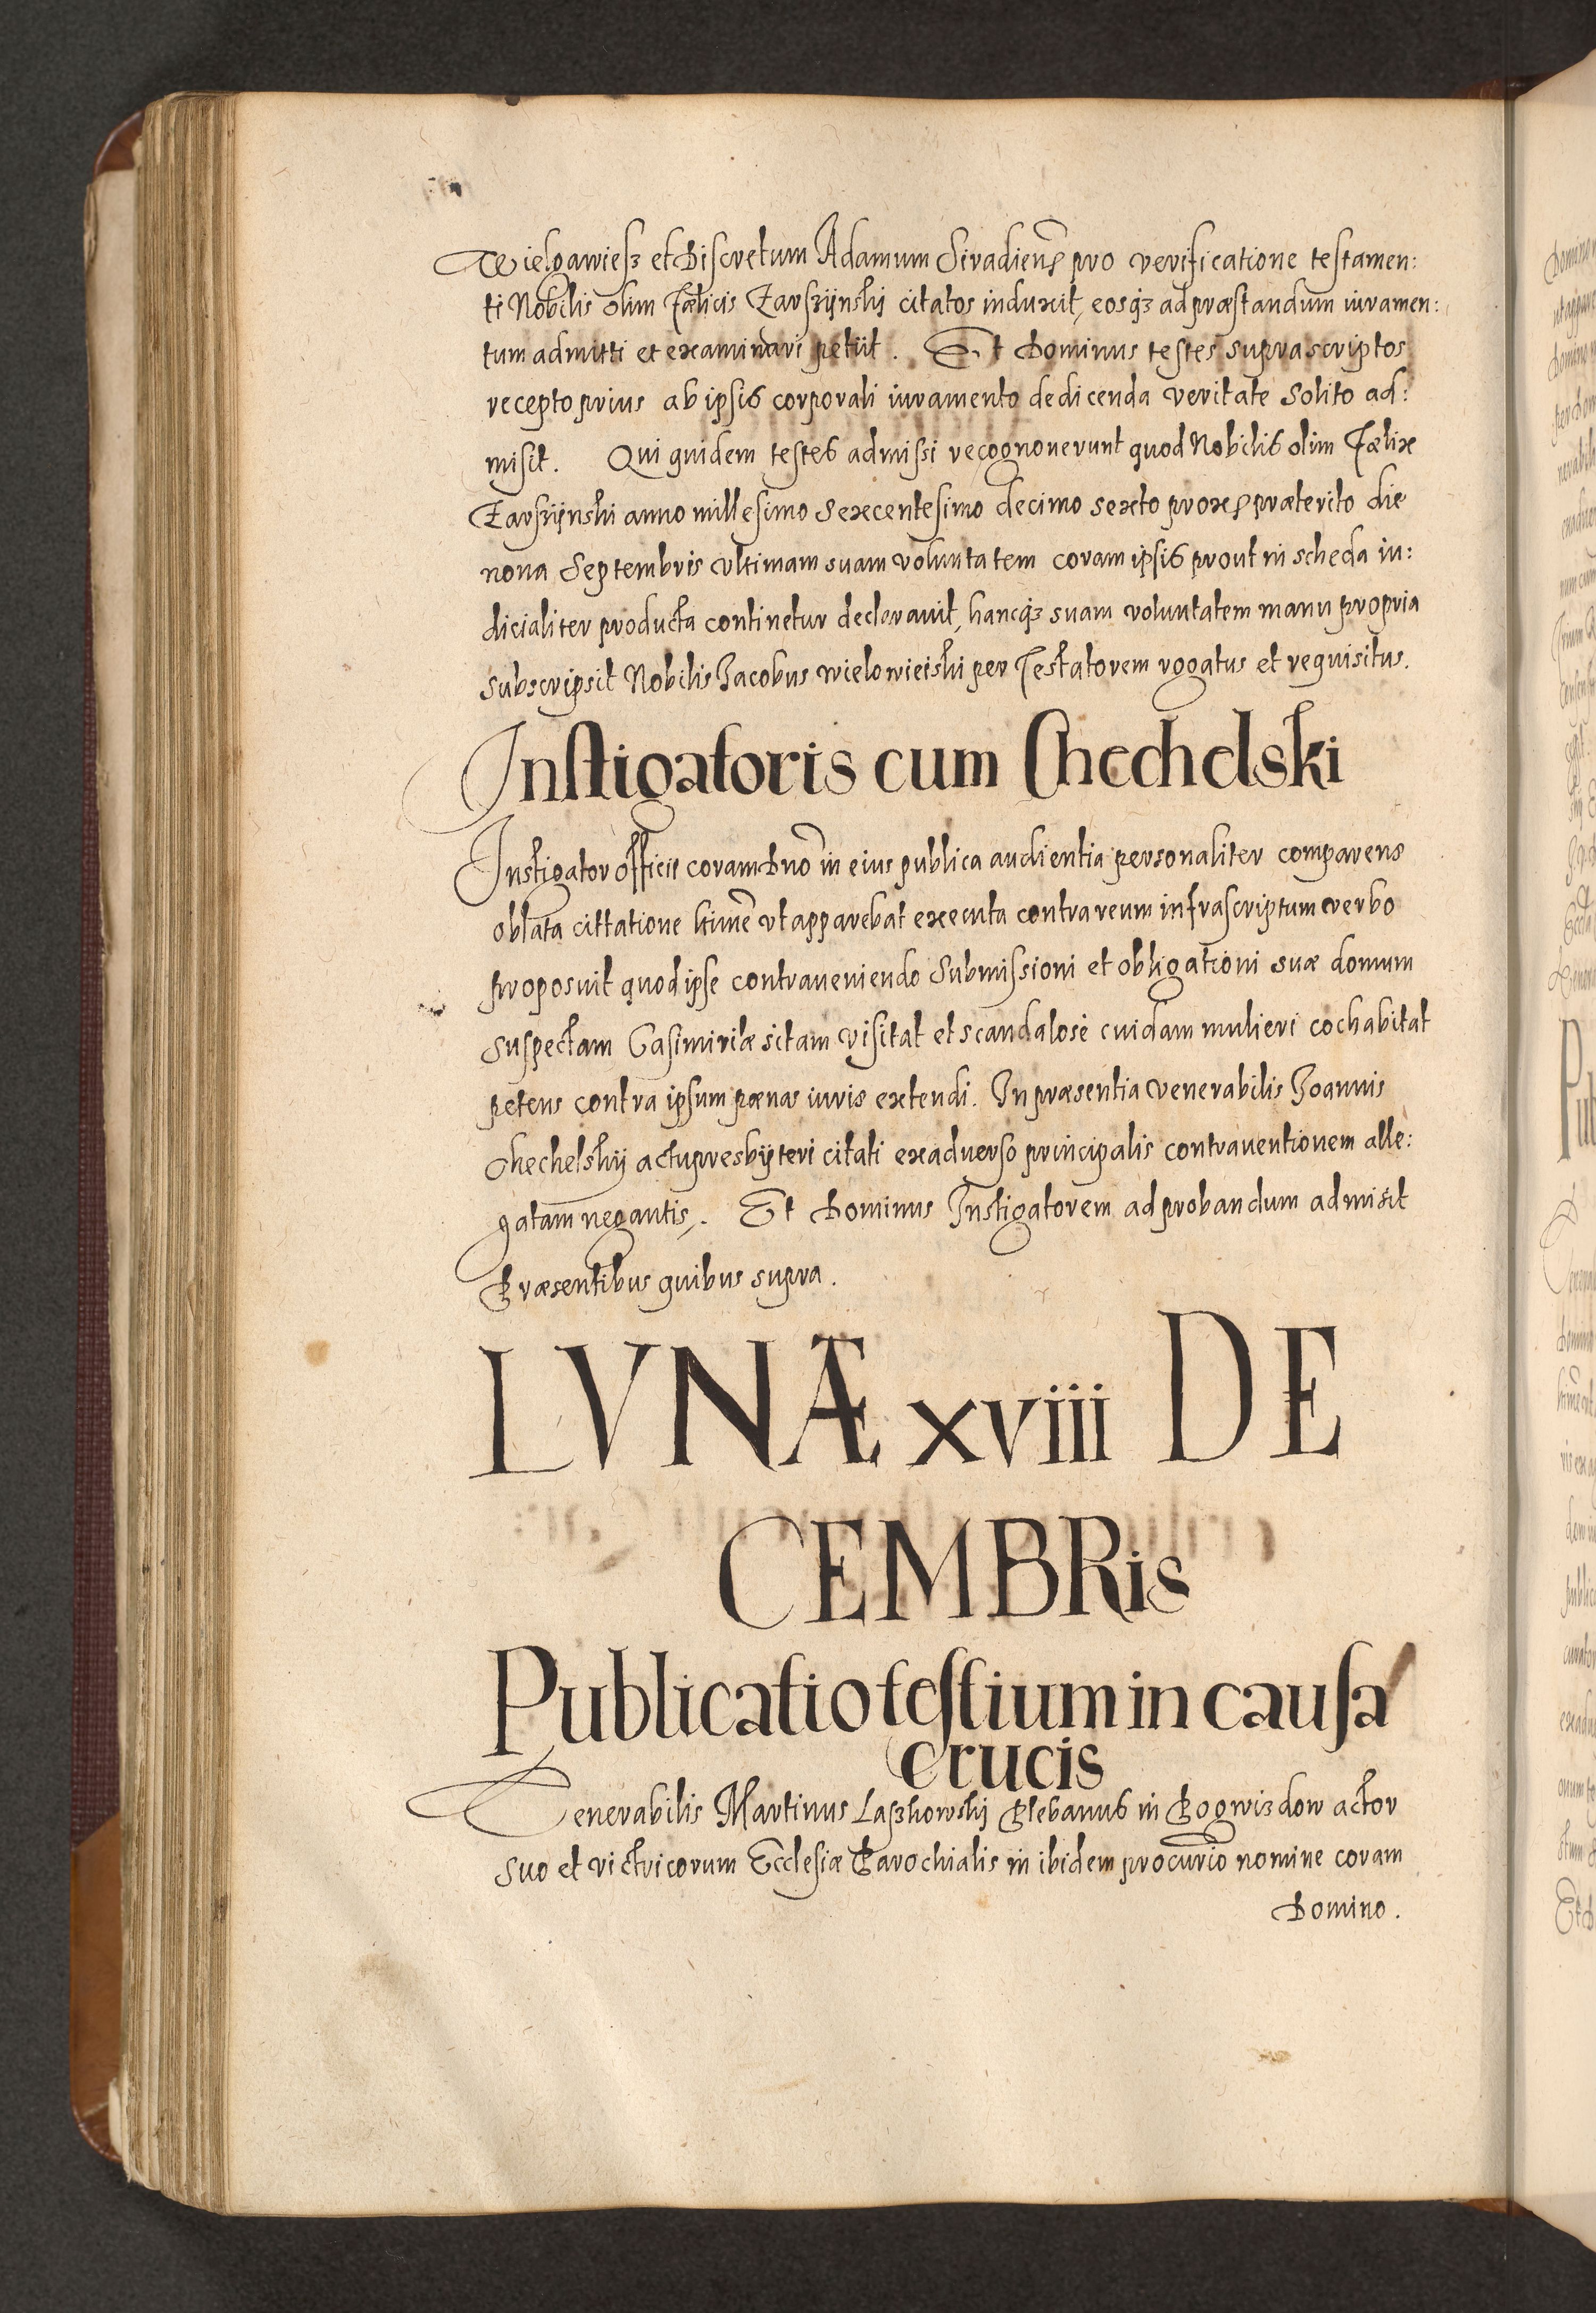 Wielgawiesz et Discretum Adamum Siradien̄ pro verificatione testamen:
ti Nobilis olim Fælicis Zarszijnskij citatos induxit, eosq3 ad præstandum iuramen:
tum admitti et examinari petiit. Et Dominus testes suprascriptos
recepto prius ab ipsis corporali iuramento de dicenda veritate solito ad:
misit. Qui quidem testes admissi recognoverunt quod Nobilis olim Fælix
Zarszijnski anno millesimo sexcentesimo decimo sexto prox præterito die
nona Septembris vltimam suam voluntatem coram ipsis prout in scheda iu:
dicialiter producta continetur declaravit, hancq3 suam voluntatem manu propria
subscripsit Nobilis Jacobus wielowieiski per Testatorem rogatus et requisitus.
Instigatoris cum Chechelski
Instigator officii coram Dn̄o in eius publica audientia personaliter comparens
oblata cittatione ltimē vt apparebat executa contra reum infrascriptum verbo
proposuit quod ipse contraveniendo submissioni et obligationi suæ domum
suspectam Casimiriæ sitam visitat et scandalosè cuidam mulieri cochabitat
petens contra ipsum pænas iuris extendi. In præsentia venerabilis Joannis
Chechelskij actupresbijteri citati ex adverso principalis contraventionem alle:
gatam negantis. Et Dominus Instigatorem ad probandum admisit
Præsentibus quibus supra.
LVNÆ xviii DE
CEMBRis
Publicatio testium in causa
crucis
Venerabilis Martinus Laszkowskij Plebanus in Pogwizdow actor
suo et victricorum Ecclesiæ Parochialis in ibidem procurio nomine coram
Domino.